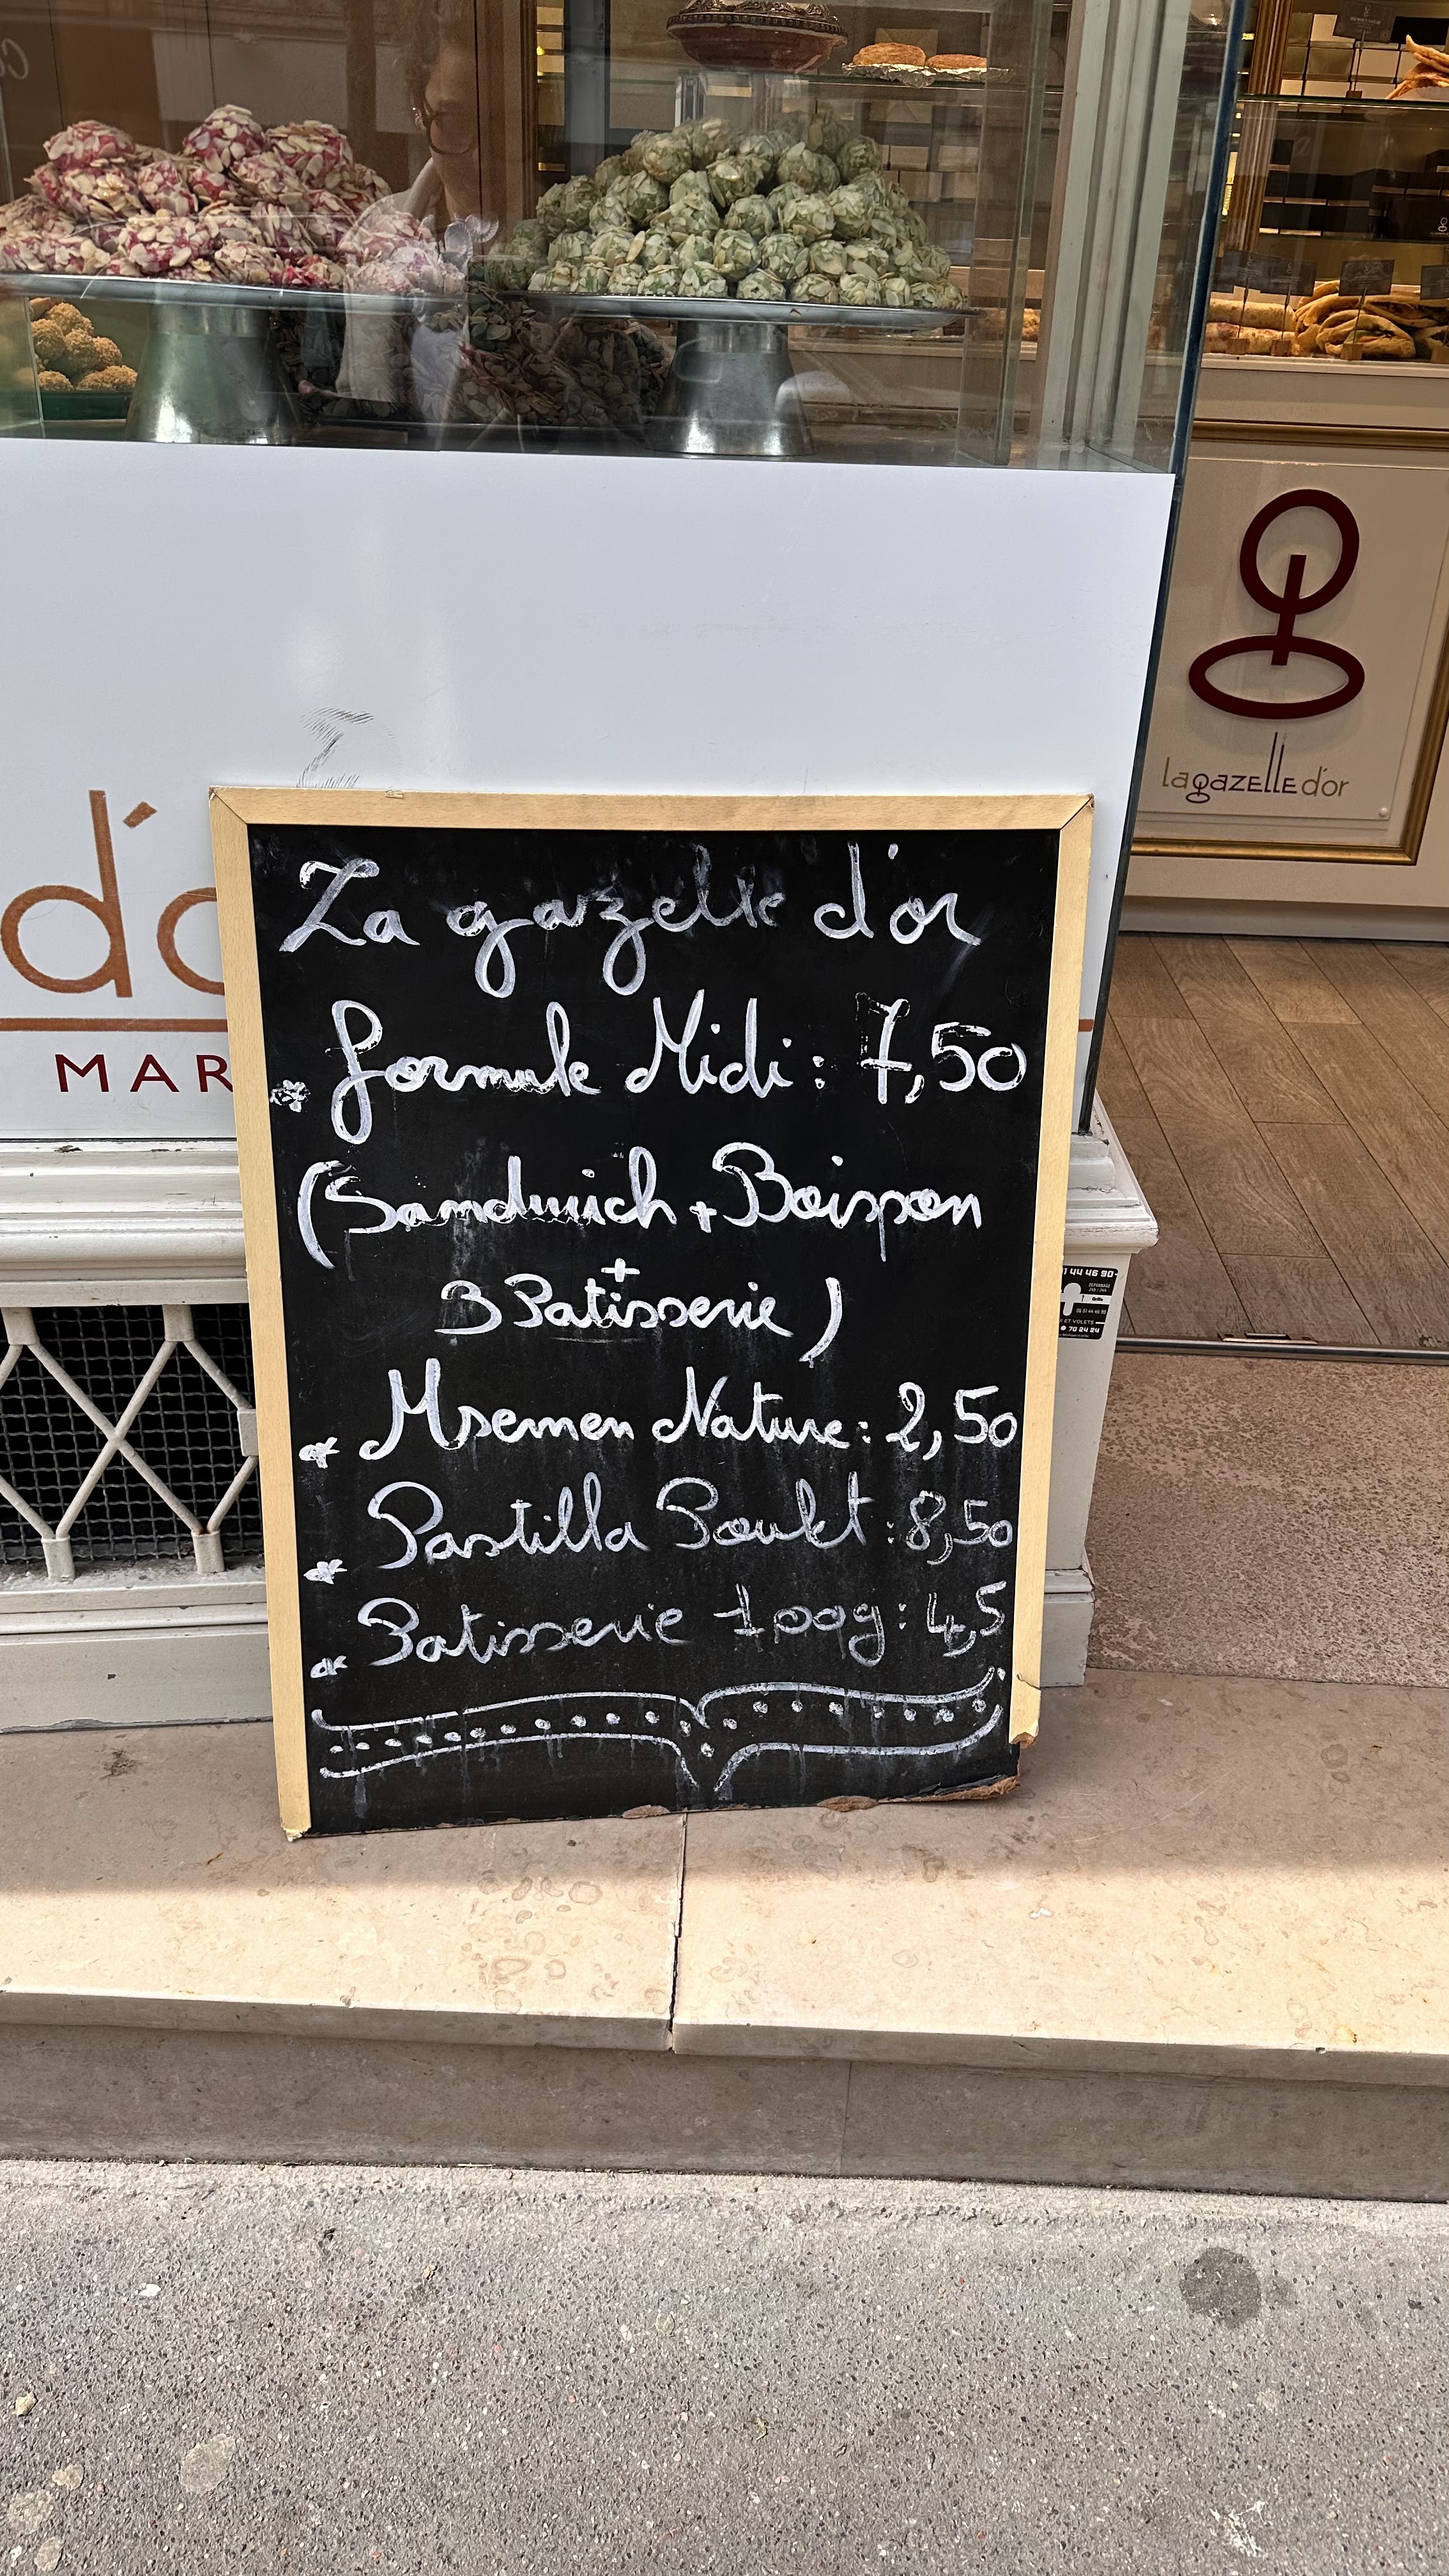 lagazelle d'or
d'o
MAR
La gazelle d'or
* formule Midi : 7,50
(Sandwich + Boisson
+
3 Patisserie)
* Msemen Nature : 2,50
* Pastilla Poulet : 8,50
* Patisserie 100g : 4,5
1 44 46 90
ET VOLETS
70 24 24